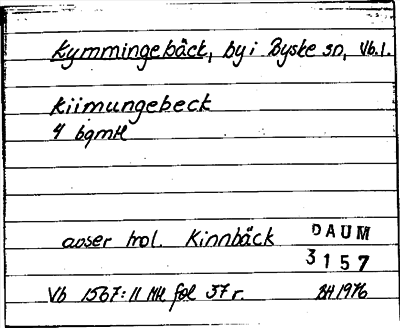 Kymmingebäck, by i Byske sn, Vb.l.
Kiimungebeck
4 bqmtl
avser trol. Kinnbäck
DAUM
3157
Vb 1567:11 Ml fol 37 r. BH 1976